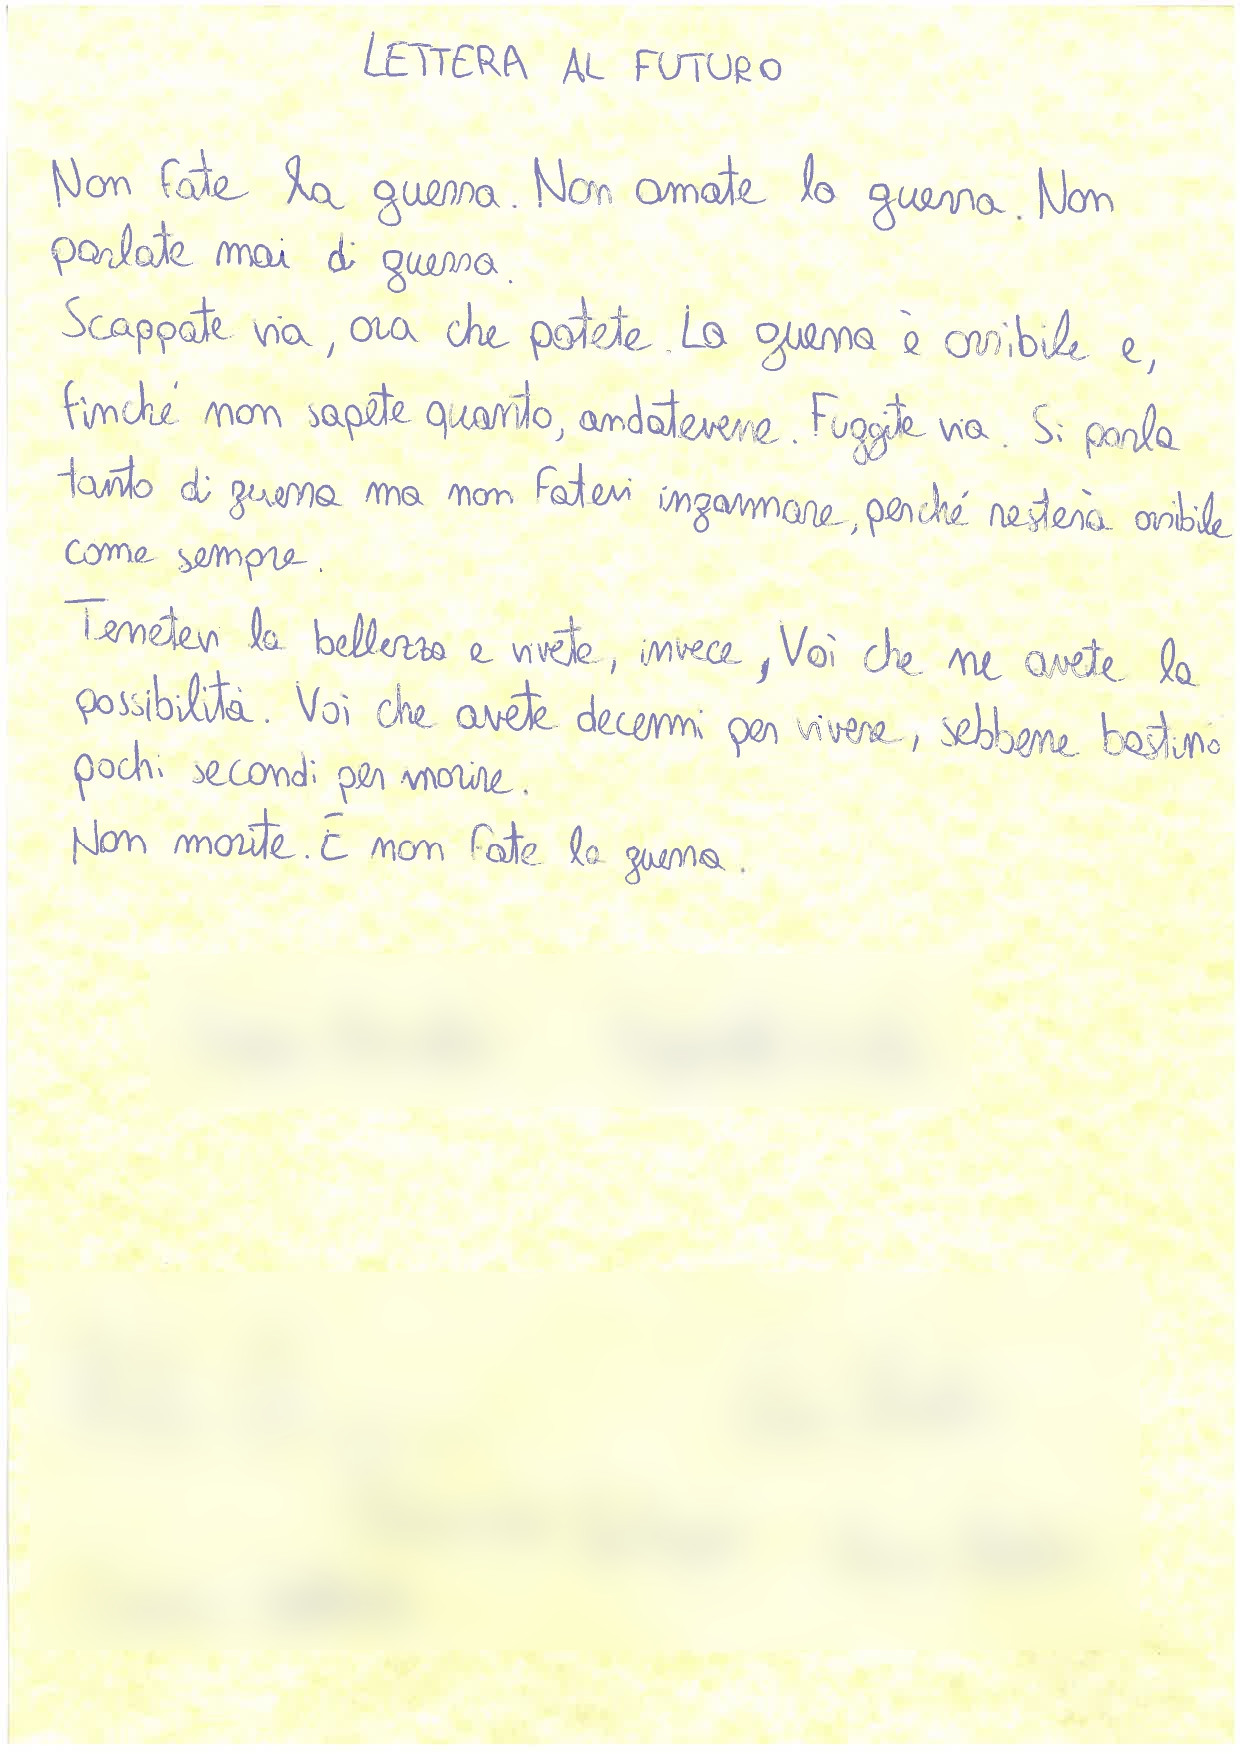 LETTERA AL FUTURO
Non fate la guerra. Non amate la guerra. Non
parlate mai di guerra.
Scappate via, ora che potete. La guerra è orribile e,
finché non sapete quanto, andatevene. Fuggite via. Si parla
tanto di guerra ma non fatevi ingannare, perché resterà orribile
come sempre.
Tenetevi la bellezza e vivete, invece, Voi che ne avete la
possibilità. Voi che avete decenni per vivere, sebbene bastino
pochi secondi per morire.
Non morite. E non fate la guerra.